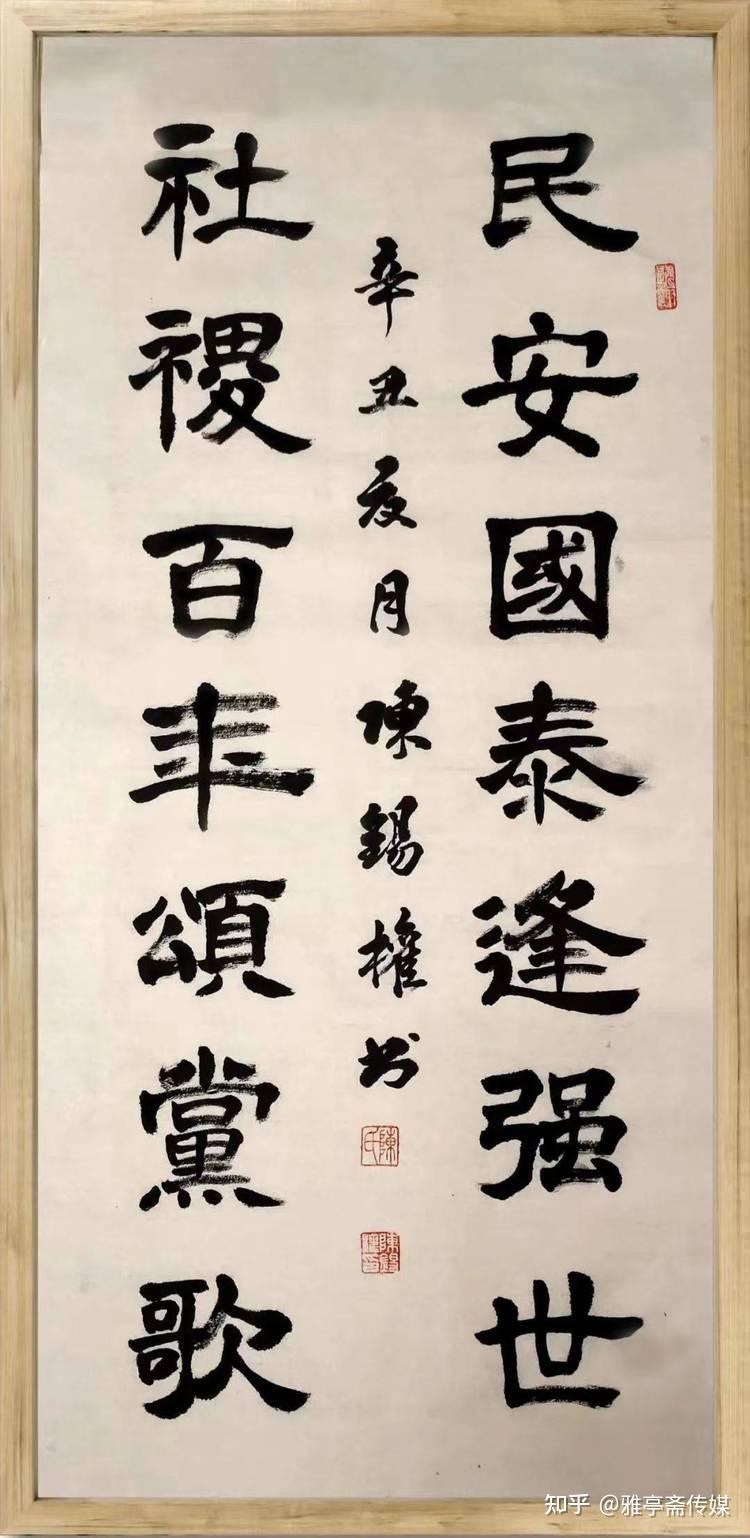 民安國泰逢强世
社禝百年頌黨歌
辛丑夏月陳錫權书
陳氏
陳錫權印
知乎 @雅亭斋传媒